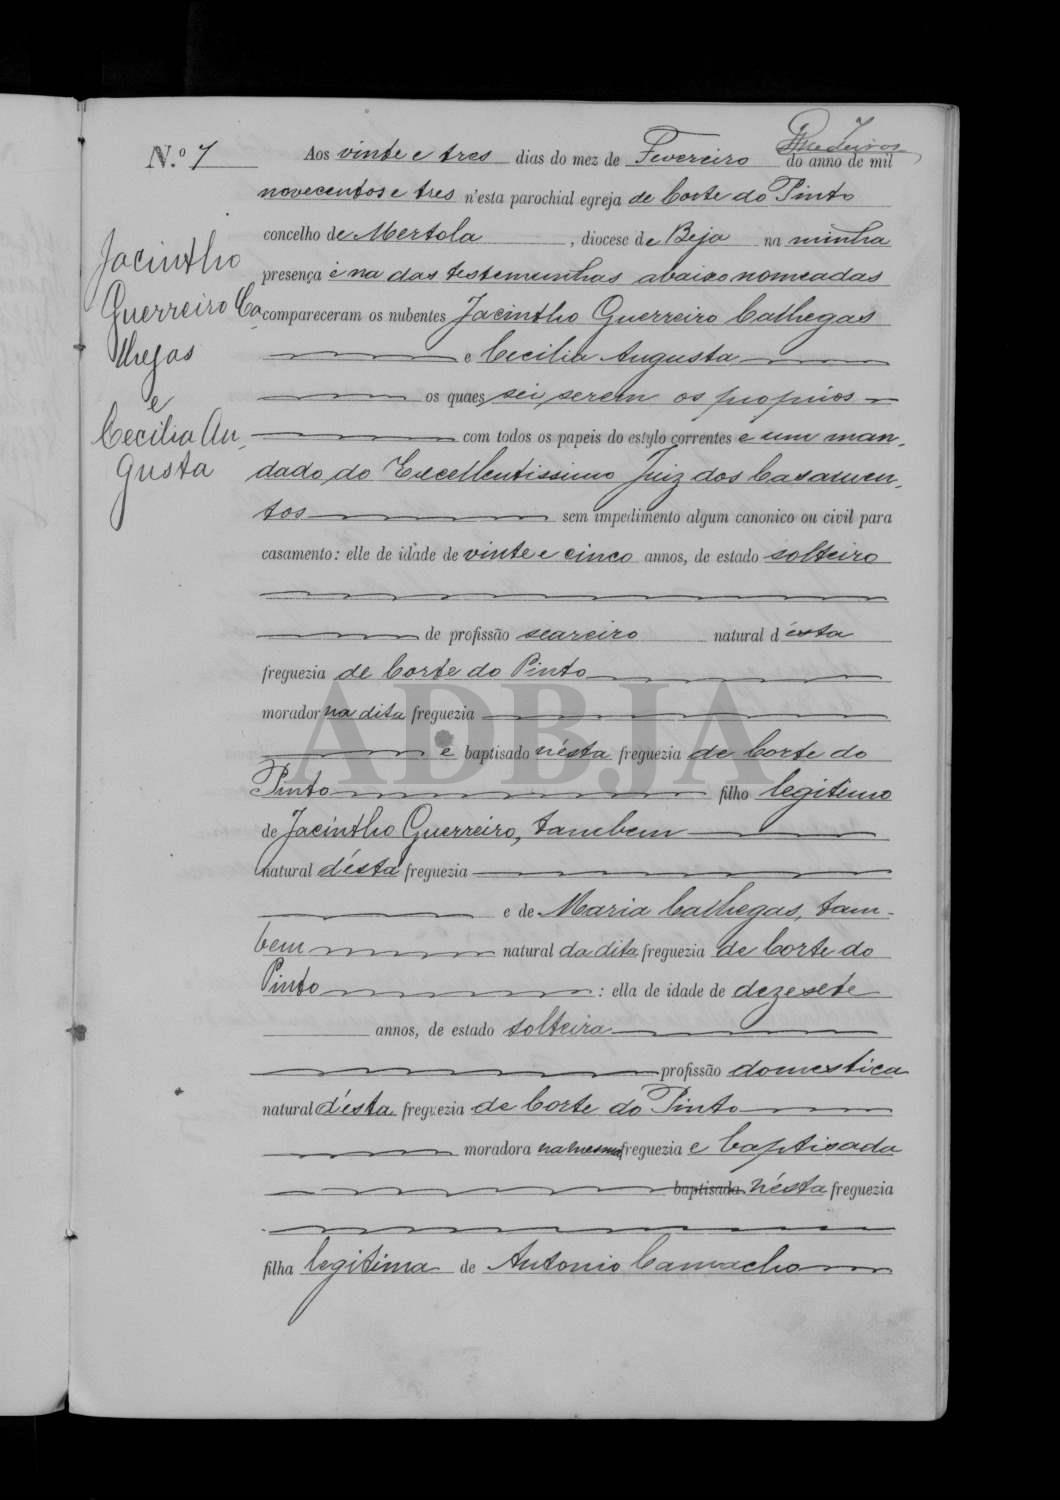 N.º 7
Aos vinte e tres dias do mez de Fevereiro do anno de mil
novecentos e tres n'esta parochial egreja de Corte do Pinto
concelho de Mertola, diocese de Beja na minha
presença e na das testemunhas abaixo nomeadas
compareceram os nubentes Jacintho Guerreiro Calhegas
e Cecilia Augusta
os quaes sei serem os proprios
com todos os papeis do estylo correntes e um man-
dado do Excellentissimo Juiz dos Casamen-
tos sem impedimento algum canonico ou civil para
casamento: elle de idade de vinte e cinco annos, de estado solteiro
de profissão seareiro natural d'esta
freguezia de Corte do Pinto
morador na dita freguezia
e baptisado n'ésta freguezia de Corte do
Pinto filho legitimo
de Jacintho Guerreiro, tambem
natural d'ésta freguezia
e de Maria Calhegas, tam-
bem natural da dita freguezia de Corte do
Pinto: ella de idade de dezesete
annos, de estado solteira
profissão domestica
natural d'ésta freguezia de Corte do Pinto
moradora na mesma freguezia e baptisada
baptisada n'ésta freguezia
filha legitima de Antonio Camacho
Jacintho
Guerreiro Ca
lhegas
e
Cecilia Au-
gusta
ADBJA